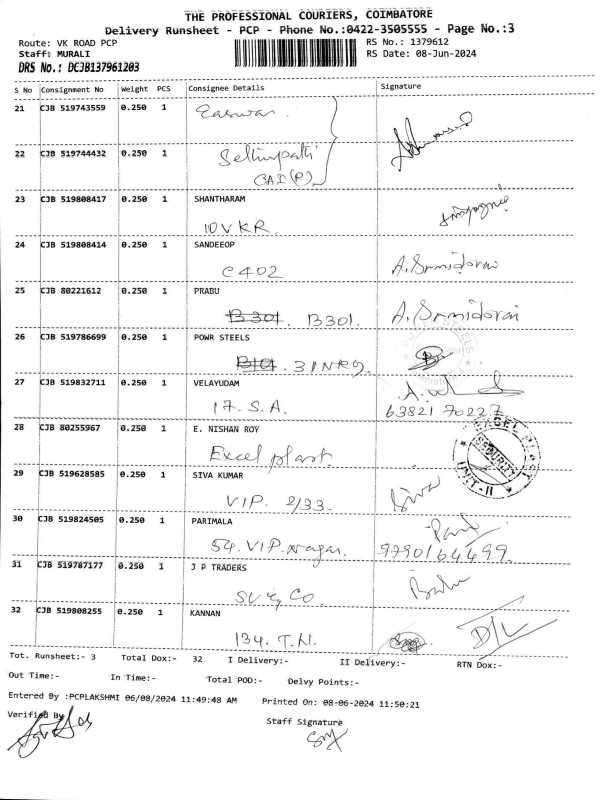 THE PROFESSIONAL COURIERS, COIMBATORE
Delivery Runsheet - PCP - Phone No.:0422-3505555 - Page No.:3
Route: VK ROAD PCP RS No.: 1379612
Staff: MURALI RS Date: 08-Jun-2024
DRS No.: DCJB137961203
S No Consignment No Weight PCS Consignee Details Signature
21 CJB 519743559 0.250 1 Easwar
22 CJB 519744432 0.250 1
23 CJB 519808417 0.250 1 SHANTHARAM
10 V K R.
24 CJB 519808414 0.250 1 SANDEEOP
C 402 A. Samidorai
25 CJB 80221612 0.250 1 PRABU
B 301. B301. A. Samidorai
26 CJB 519786699 0.250 1 POWR STEELS
31 NRG.
27 CJB 519832711 0.250 1 VELAYUDAM
17. S. A. 63821 70227
28 CJB 80255967 0.250 1 E. NISHAN ROY
Excel plast.
EXCEL PLAST
SECURITY
UNIT-II
29 CJB 519628585 0.250 1 SIVA KUMAR
VIP. 2/33. Siva
30 CJB 519824505 0.250 1 PARIMALA
54. VIP. Nagar. 9790164499.
31 CJB 519787177 0.250 1 J P TRADERS
SV & CO
32 CJB 519808255 0.250 1 KANNAN
134. T.N. D/L
Tot. Runsheet:- 3 Total Dox:- 32 I Delivery:- II Delivery:- RTN Dox:-
Out Time:- In Time:- Total POD:- Delvy Points:-
Entered By :PCPLAKSHMI 06/08/2024 11:49:48 AM Printed On: 08-06-2024 11:50:21
Verified By Staff Signature